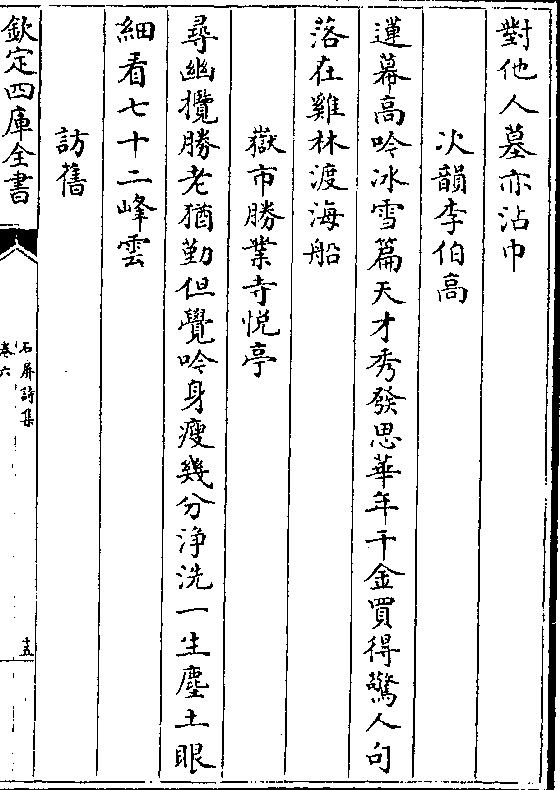 對他人墓亦沾巾
次韻李伯高
蓮幕高吟冰雪篇天才秀發思華年千金買得驚人句
落在雞林渡海船
嶽市勝業寺悦亭
尋幽攬勝老猶勤但覺吟身瘦幾分浄洗一生塵土眼
細看七十二峰雲
訪舊
欽定四庫全書
石屏詩集
卷六
十五